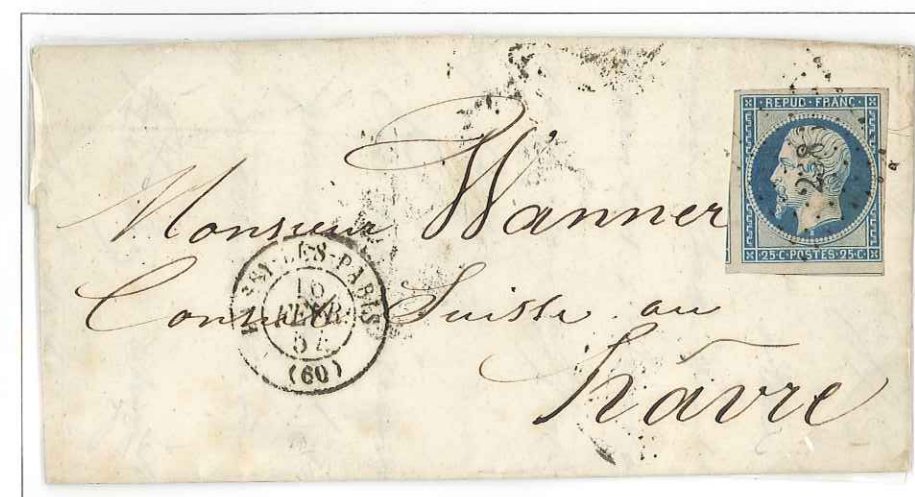 REPUB-FRANC-
238
25-C-POSTES-25-C-
Monsieur Wanner
Consul Suisse au
Hâvre
PASSY-LES-PARIS
16
FEVR.
54
(60)